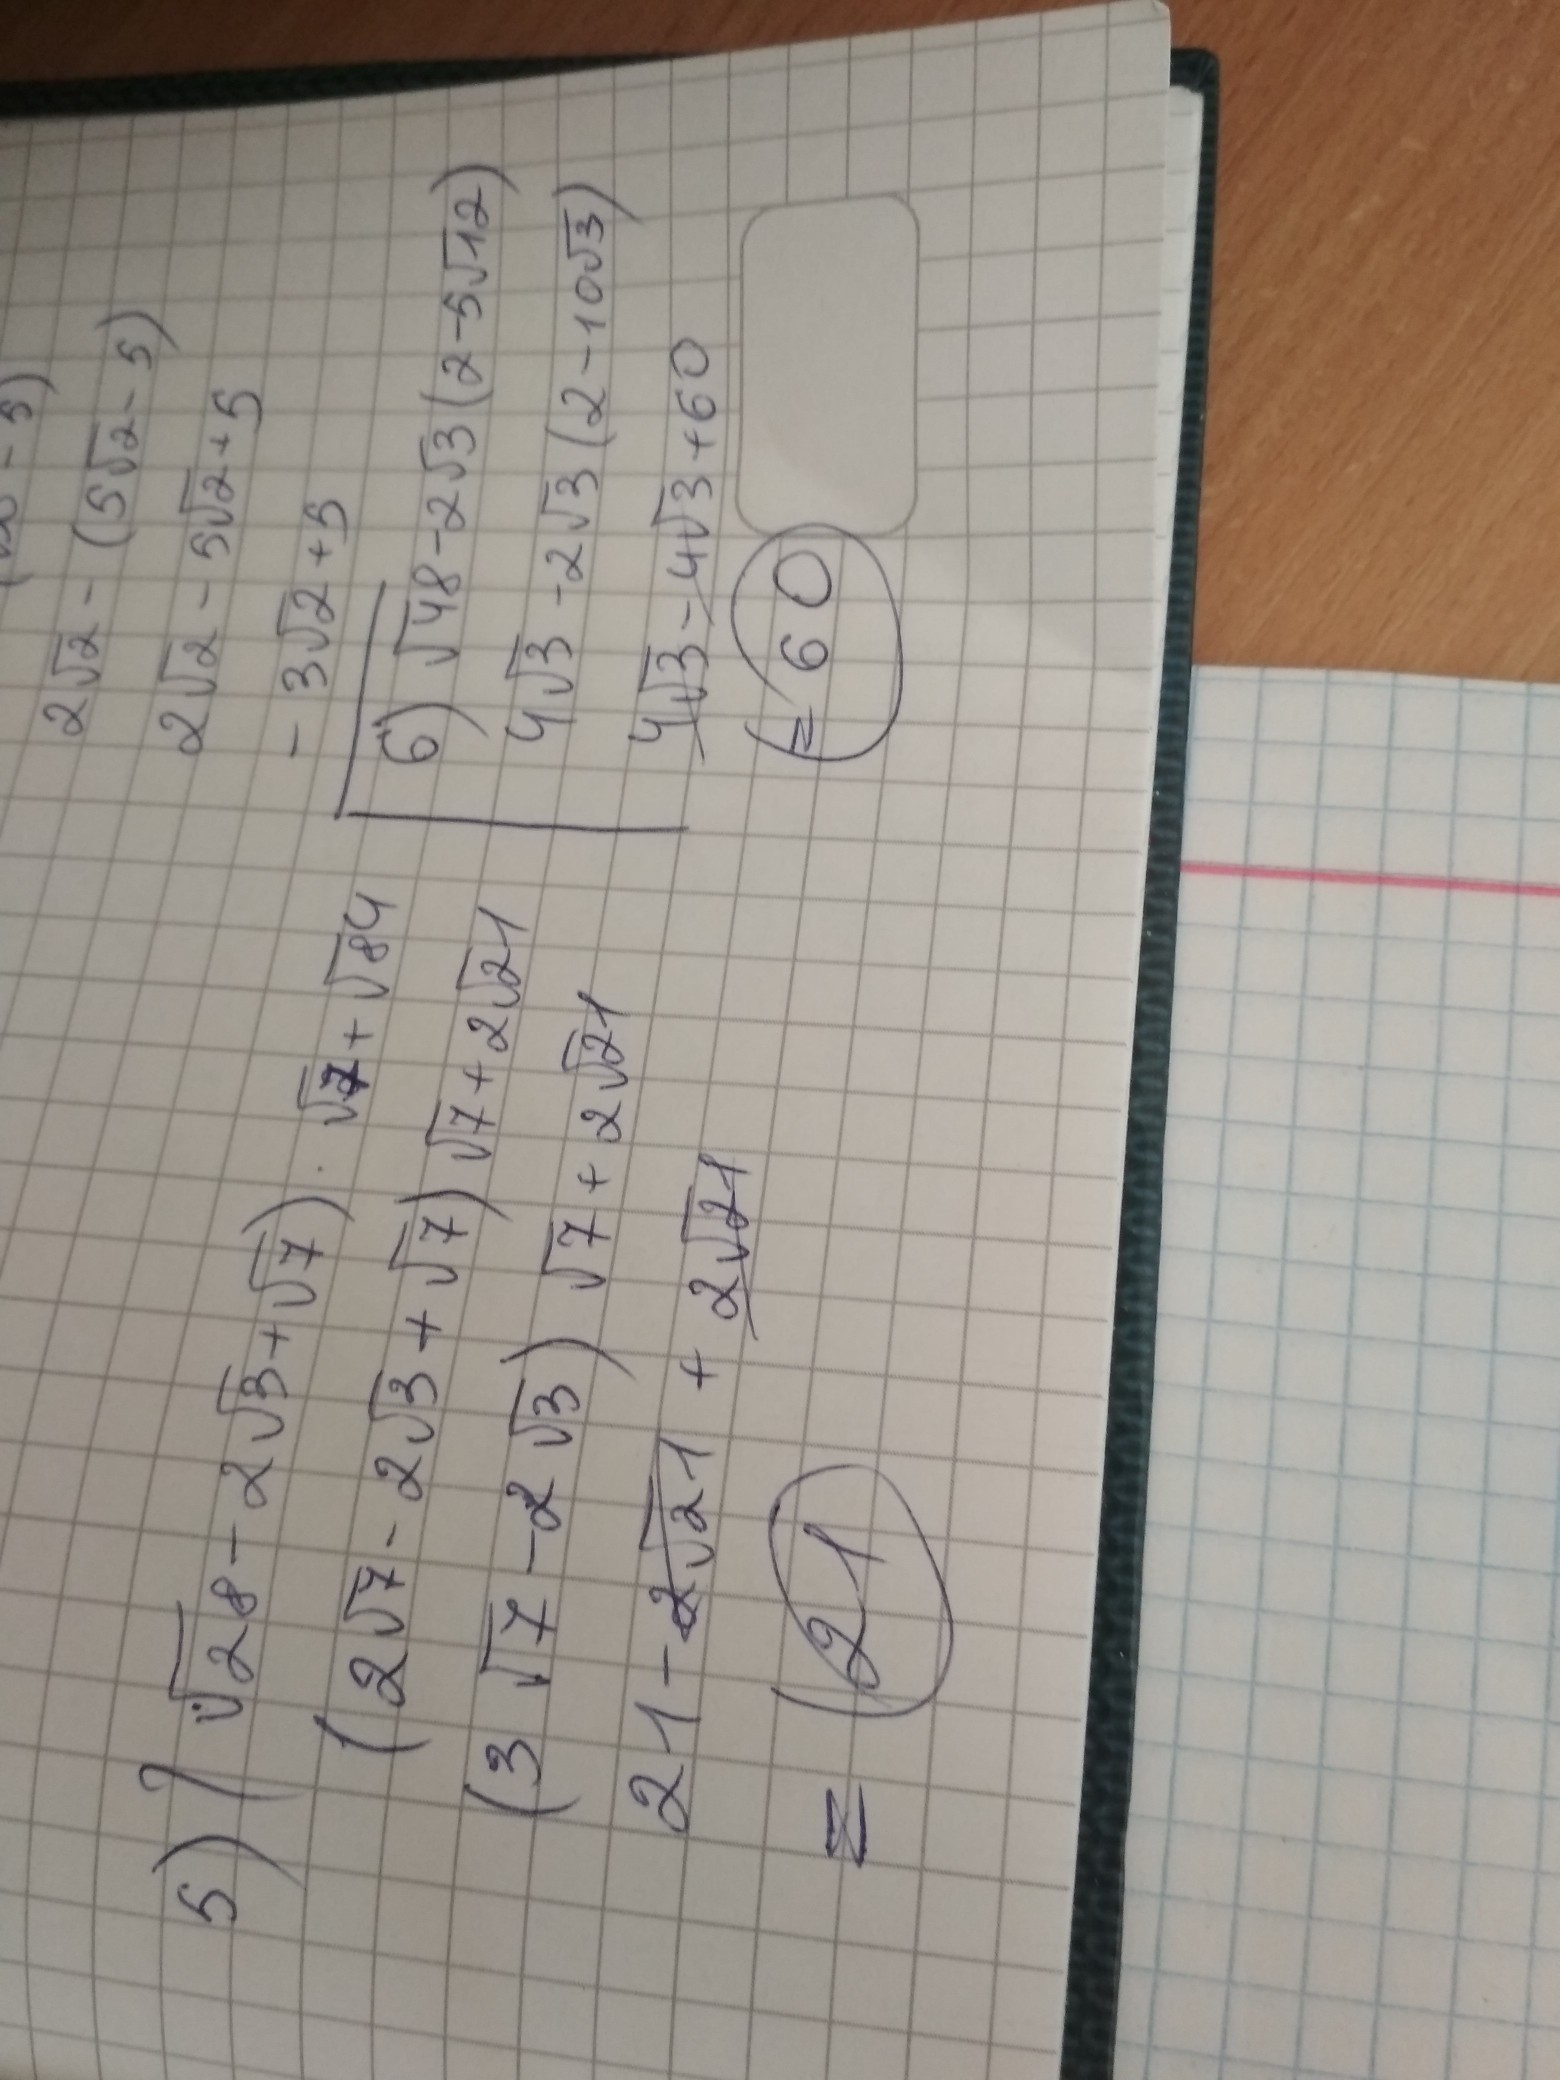 2√2 - (5√2 - 5)
2√2 - 5√2 + 5
- 3√2 + 5
5) (√28 - 2√3 + √7) · √7 + √84
(2√7 - 2√3 + √7) √7 + 2√21
(3 √7 - 2 √3) √7 + 2√21
21 - 2√21 + 2√21
= 21
6) √48 - 2√3 (2 - 5√12)
4√3 - 2√3 (2 - 10√3)
4√3 - 4√3 + 60
= 60